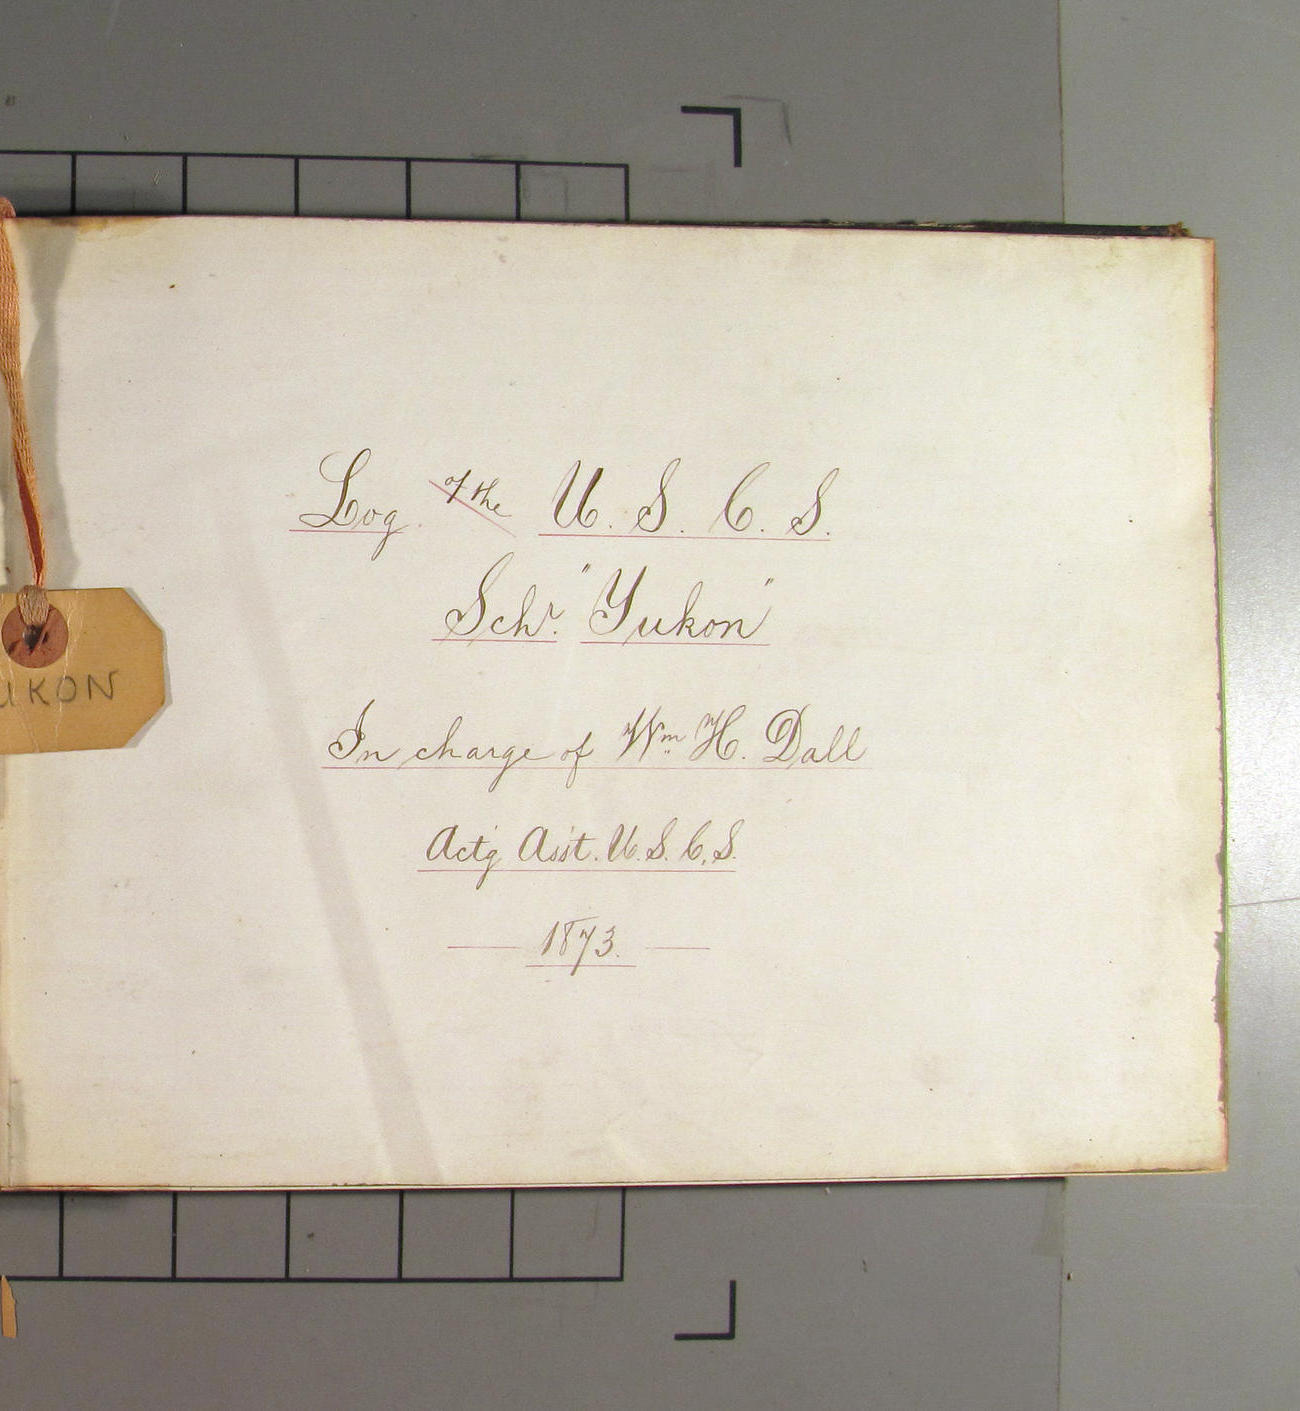 Log of the U. S. C. S.
Schr. "Yukon"
In charge of Wm H. Dall
Act'g Ass't. U. S. C. S.
1873.
UKON